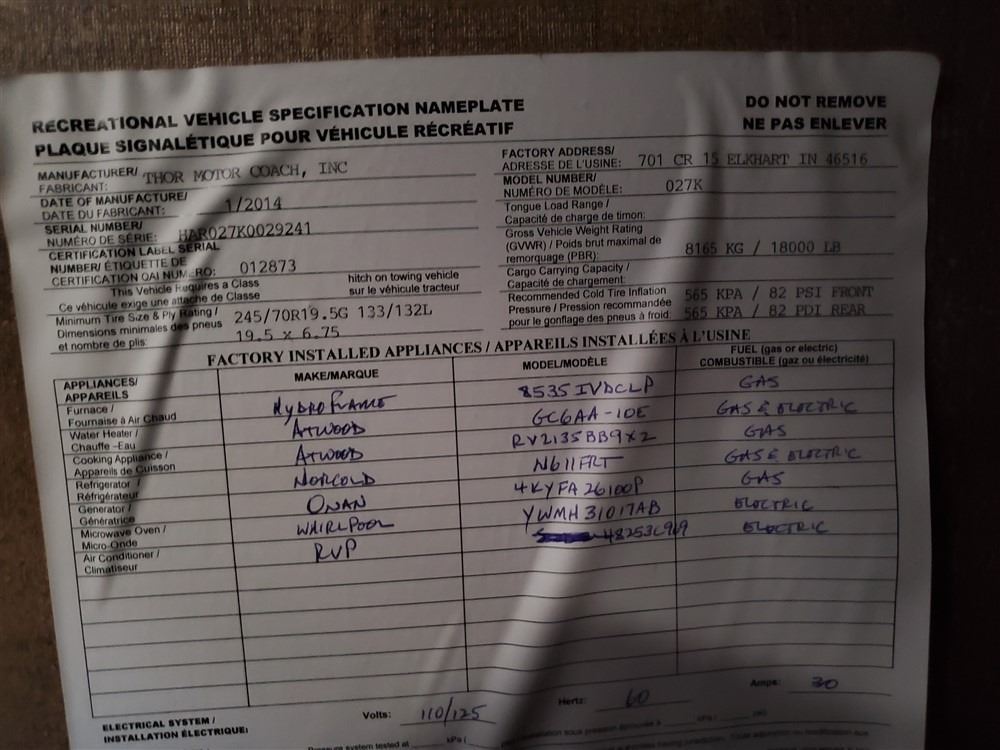 RECREATIONAL VEHICLE SPECIFICATION NAMEPLATE
PLAQUE SIGNALÉTIQUE POUR VÉHICULE RÉCRÉATIF
DO NOT REMOVE
NE PAS ENLEVER
MANUFACTURER/
FABRICANT: THOR MOTOR COACH, INC
DATE OF MANUFACTURE/
DATE DU FABRICANT: 1/2014
SERIAL NUMBER/
NUMÉRO DE SÉRIE: HAR027K0029241
CERTIFICATION LABEL SERIAL
NUMBER/ ÉTIQUETTE DE
CERTIFICATION QAI NUMÉRO: 012873
This Vehicle Requires a Class hitch on towing vehicle
Ce véhicule exige une attache de Classe sur le véhicule tracteur
Minimum Tire Size & Ply Rating / 245/70R19.5G 133/132L
Dimensions minimales des pneus
et nombre de plis: 19.5 x 6.75
FACTORY ADDRESS/
ADRESSE DE L'USINE: 701 CR 15 ELKHART IN 46516
MODEL NUMBER/
NUMÉRO DE MODÈLE: 027K
Tongue Load Range /
Capacité de charge de timon:
Gross Vehicle Weight Rating
(GVWR) / Poids brut maximal de
remorquage (PBR): 8165 KG / 18000 LB
Cargo Carrying Capacity /
Capacité de chargement:
Recommended Cold Tire Inflation 565 KPA / 82 PSI FRONT
Pressure / Pression recommandée
pour le gonflage des pneus à froid: 565 KPA / 82 PDI REAR
FACTORY INSTALLED APPLIANCES / APPAREILS INSTALLÉES À L'USINE
APPLIANCES/ MAKE/MARQUE MODEL/MODÈLE FUEL (gas or electric)
APPAREILS COMBUSTIBLE (gaz ou électricité)
Furnace / HYDRO FLAME 8535 IVDCLP GAS
Fournaise à Air Chaud
Water Heater / ATWOOD GC6AA-10E GAS & ELECTRIC
Chauffe -Eau
Cooking Appliance / ATWOOD RV2135BB9X2 GAS
Appareils de Cuisson
Refrigerator / NORCOLD N611FRT GAS & ELECTRIC
Réfrigérateur
Generator / ONAN 4KYFA26100P GAS
Génératrice
Microwave Oven / WHIRLPOOL YWMH31017AB ELECTRIC
Micro-Onde
Air Conditioner / RVP 48253C969 ELECTRIC
Climatiseur
ELECTRICAL SYSTEM / Volts: 110/125 Hertz: 60 Amps: 30
INSTALLATION ÉLECTRIQUE: